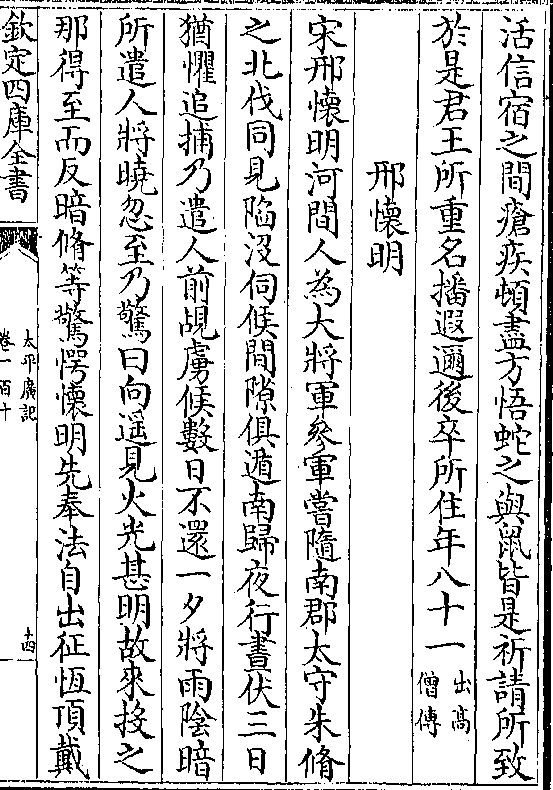 活信宿之間瘡疾頓盡方悟蛇之與鼠皆是祈請所致
於是君王所重名播遐邇後卒所住年八十一出高
僧傳
邢懷明
宋邢懷明河間人為大將軍參軍嘗隨南郡太守朱脩
之北伐同見陷没伺候間隙俱遁南歸夜行晝伏三日
猶懼追捕乃遣人前覘虜候數日不還一夕將雨陰暗
所遣人將曉忽至乃驚曰向遥見火光甚明故來投之
那得至而反暗脩等驚愕懷明先奉法自出征恆頂戴
欽定四庫全書
太平廣記
卷一百十
十四